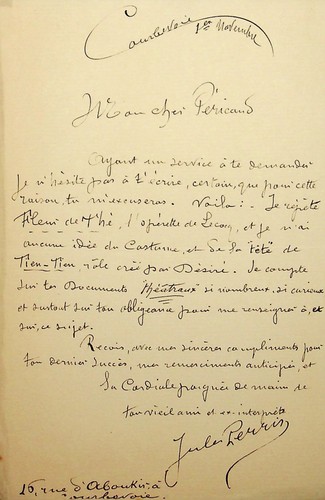 Courbevoie 1er Novembre
Mon cher Péricaud
Ayant un service à te demander
je n'hésite pas à t'écrire, certain, que pour cette
raison, tu m'excuseras. Voilà :. Je répète
Fleur de Thé, l'opérette de Lecocq, et je n'ai
aucune idée du Costume, et de la tête de
Tien-Tien, rôle créé par Désiré. Je compte
sur tes Documents théatraux si nombreux, si curieux
et surtout sur ton obligeance pour me renseigner à, et
sur, ce sujet.
Reçois, avec mes sincères compliments pour
ton dernier succès, mes remerciments anticipés, et
la Cordiale poignée de main de
ton vieil ami et ex-interprète
Jules Perrin
16, rue d'Aboukir, à
Courbevoie.